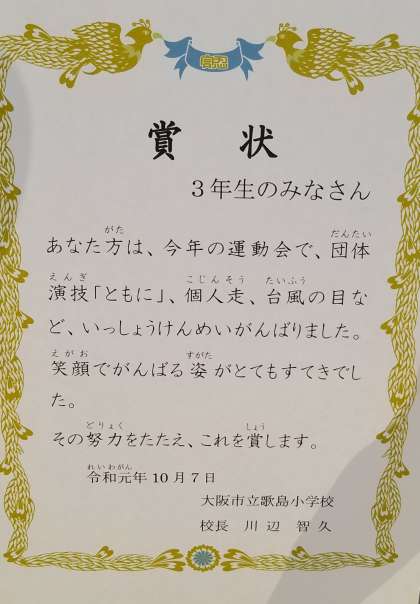 賞状
３年生のみなさん
あなた方は、今年の運動会で、団体
演技「ともに」、個人走、台風の目な
ど、いっしょうけんめいがんばりました。
笑顔でがんばる姿がとてもすてきでし
た。
その努力をたたえ、これを賞します。
令和元年10月7日
大阪市立歌島小学校
校長 川辺 智久